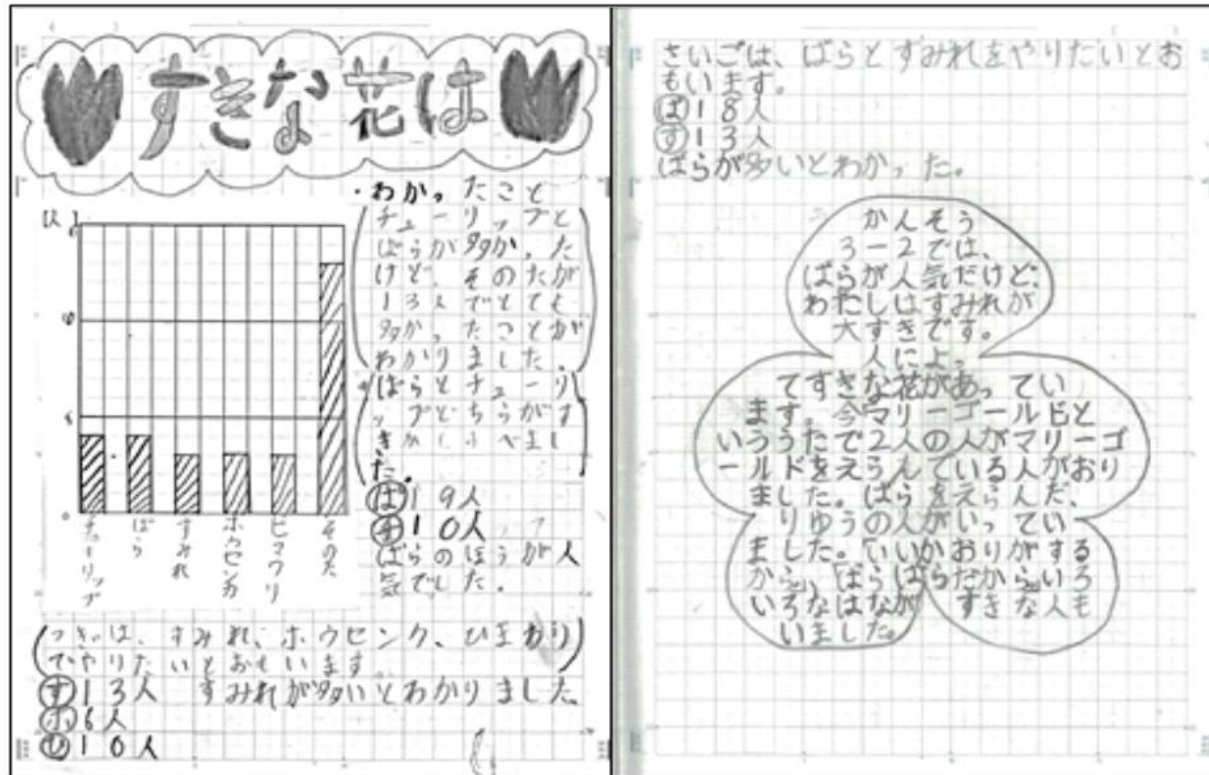 すきな花は
・わかったこと
チューリップと
ばらが多かった
けど、そのたが
13人でとても
多かったことが
わかりました。
ばらとチューリ
ップどちらがす
きかくらべまし
た。
ば19人
チ10人
ばらのほうが人
気でした。
(人)
10
5
0
チューリップ
ばら
すみれ
ホウセンカ
ヒマワリ
そのた
つぎは、すみれ、ホウセンク、ひまわり
でやりたいとおもいます
す13人 すみれが多いとわかりました。
ホ6人
ひ10人
さいごは、ばらとすみれをやりたいとお
もいます。
ば18人
す13人
ばらが多いとわかった。
かんそう
3-2では、
ばらが人気だけど、
わたしはすみれが
大すきです。
人によっ
てすきな花があってい
ます。今マリーゴールドと
いううたで2人の人がマリーゴ
ールドをえらんでいる人がおり
ました。ばらをえらんだ、
りゆうの人がいってい
ました。「いいかおりがする
から」「ばらばらだから」いろ
いろなはなが すきな人も
いました。